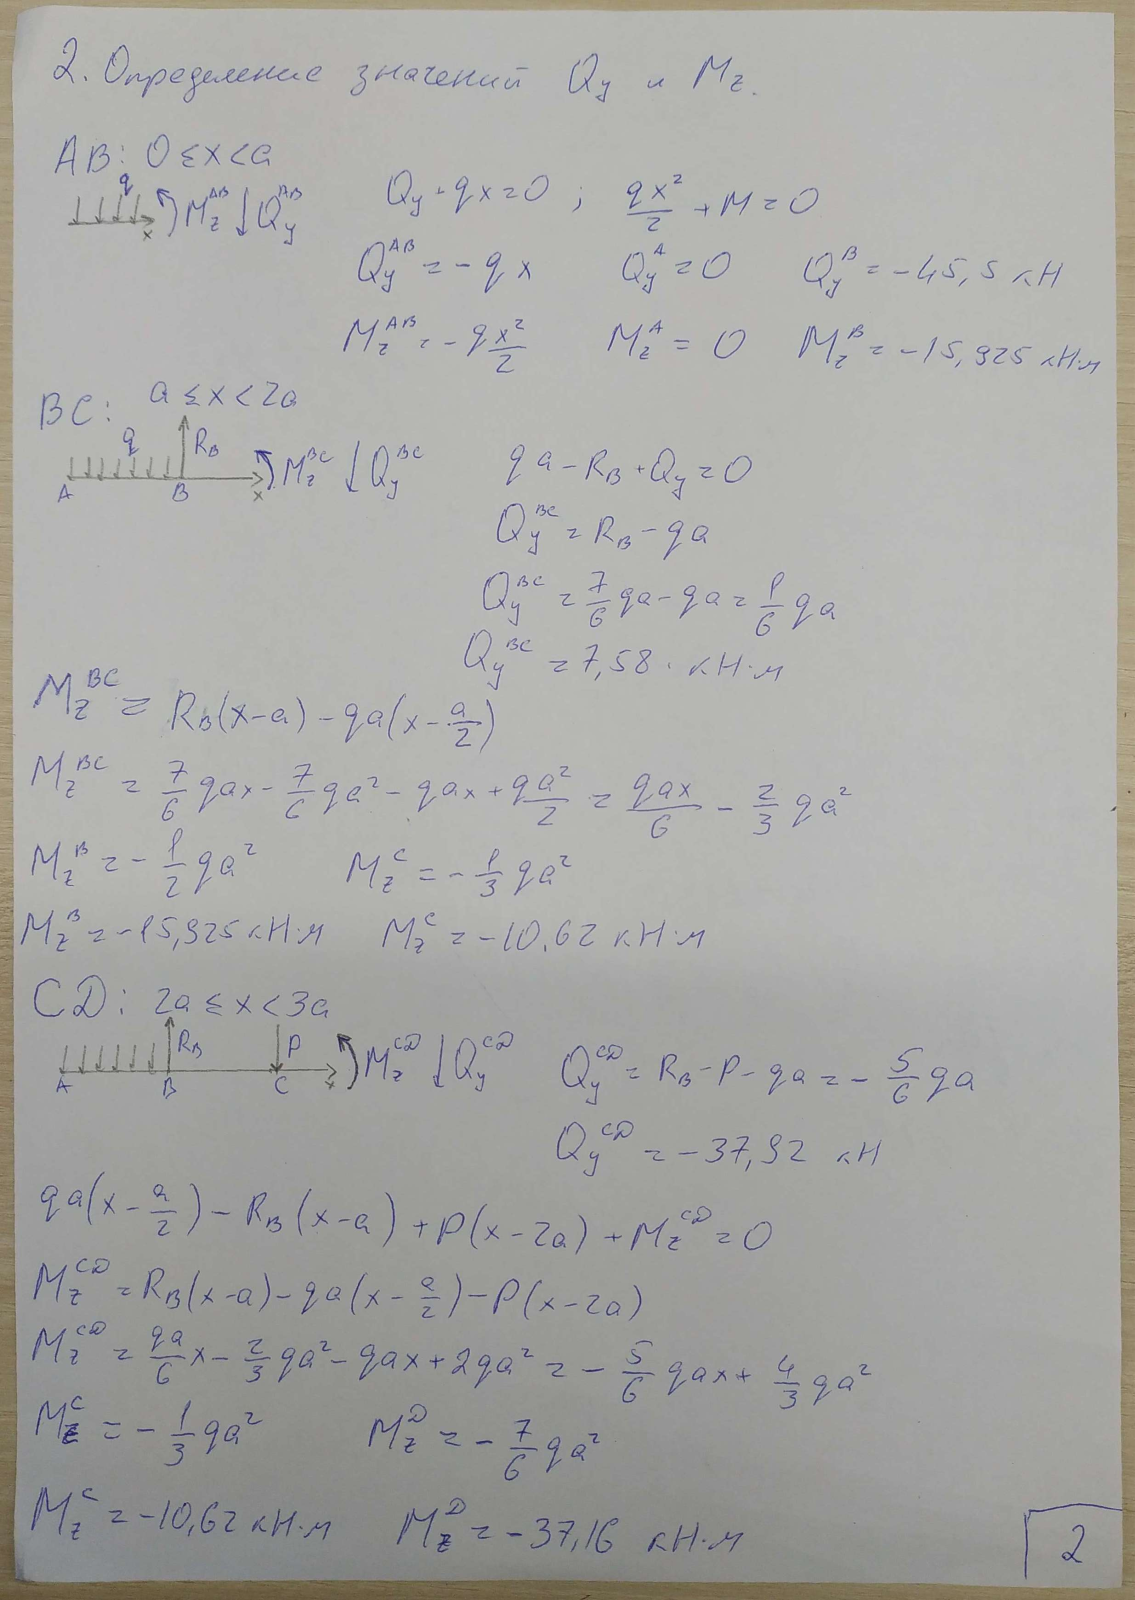 2. Определение значений Qy и Mz.
AB: 0 ≤ x < a
q x Mz^AB Qy^AB
Qy + qx = 0 ; qx²/2 + M = 0
Qy^AB = -qx Qy^A = 0 Qy^B = -45,5 кН
Mz^AB = -qx²/2 Mz^A = 0 Mz^B = -15,925 кН·м
BC: a ≤ x < 2a
q R_B A B x Mz^BC Qy^BC
qa - R_B + Qy = 0
Qy^BC = R_B - qa
Qy^BC = 7/6 qa - qa = 1/6 qa
Qy^BC = 7,58 · кН·м
Mz^BC = R_B(x-a) - qa(x - a/2)
Mz^BC = 7/6 qax - 7/6 qa² - qax + qa²/2 = qax/6 - 2/3 qa²
Mz^B = -1/2 qa² Mz^C = -1/3 qa²
Mz^B = -15,925 кН·м Mz^C = -10,62 кН·м
CD: 2a ≤ x < 3a
A R_B B P C x Mz^CD Qy^CD
Qy^CD = R_B - P - qa = -5/6 qa
Qy^CD = -37,92 кН
qa(x - a/2) - R_B(x-a) + P(x-2a) + Mz^CD = 0
Mz^CD = R_B(x-a) - qa(x - a/2) - P(x-2a)
Mz^CD = qa/6 x - 2/3 qa² - qax + 2qa² = -5/6 qax + 4/3 qa²
Mz^C = -1/3 qa² Mz^D = -7/6 qa²
Mz^C = -10,62 кН·м Mz^D = -37,16 кН·м
2